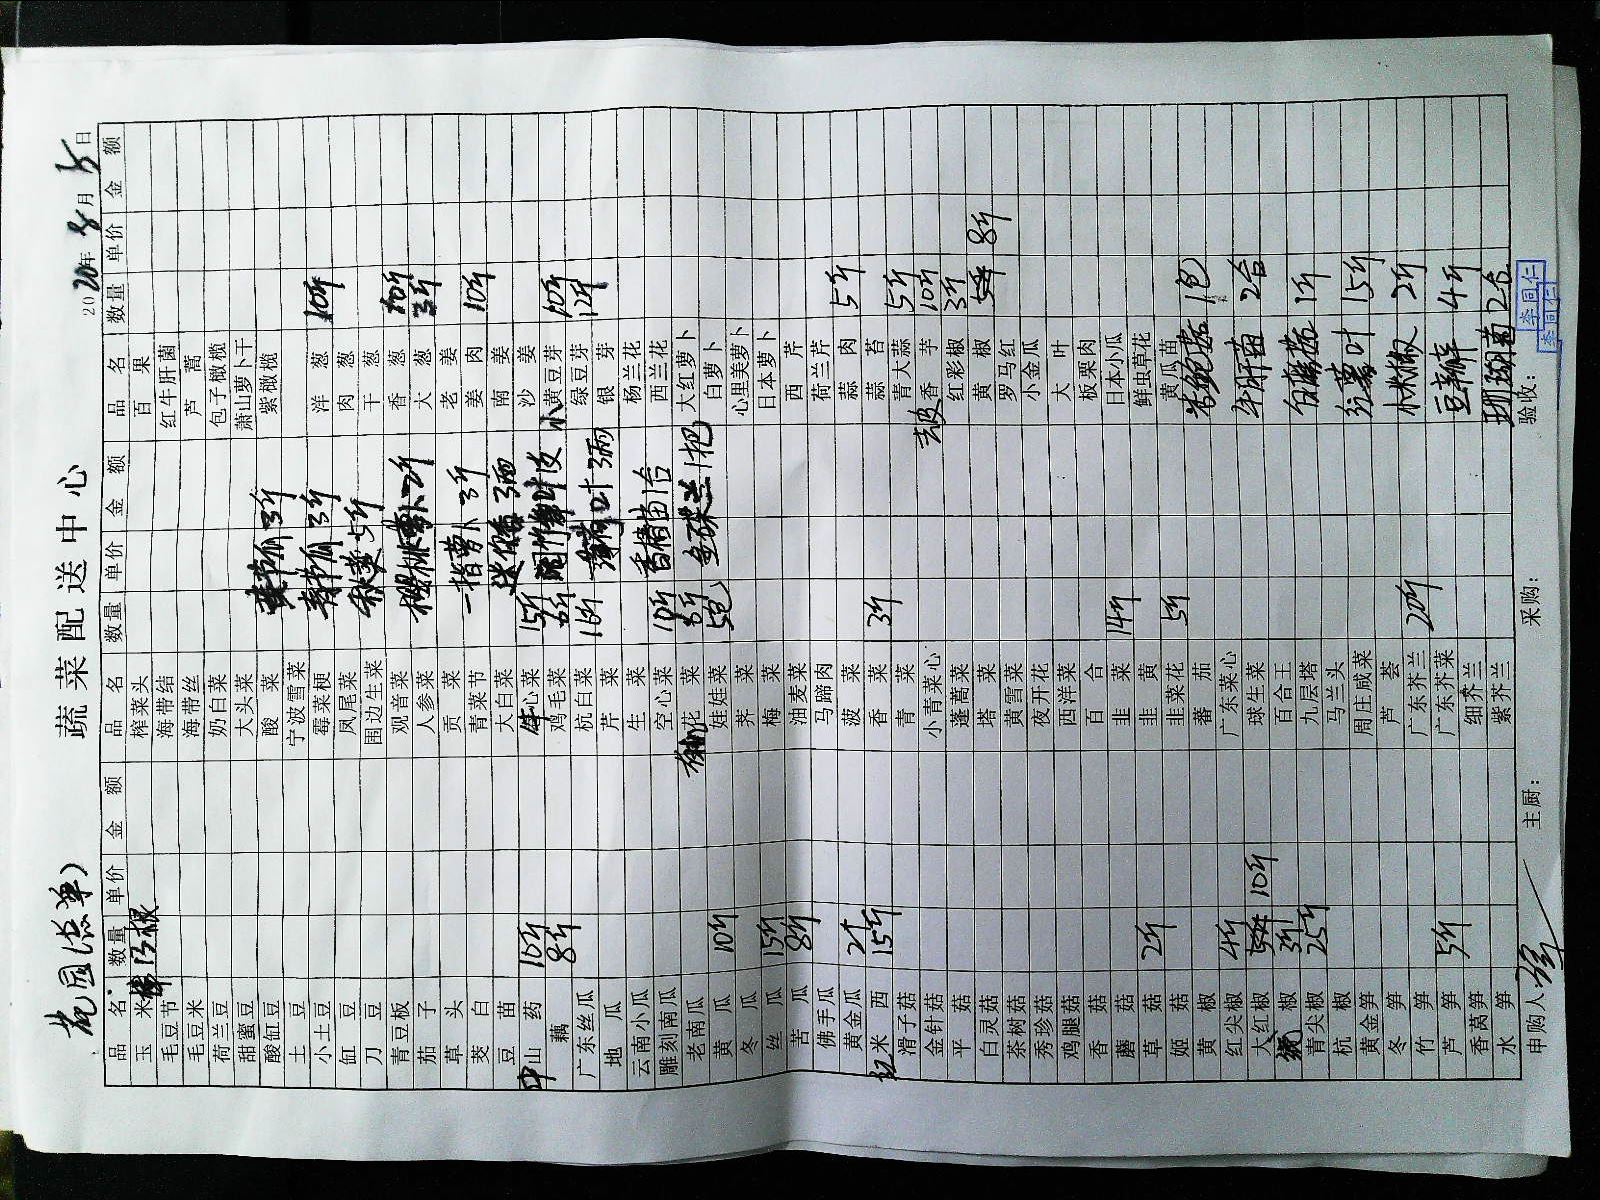 蔬菜配送中心
花园(总单) 2020年8月5日
品名 数量 单价 金额 品名 数量 单价 金额 品名 数量 单价 金额
玉米 榨菜头 百果
毛豆节 海带结 红牛肝菌
毛豆米 海带丝 芦蒿
荷兰豆 奶白菜 包子橄榄
甜蜜豆 大头菜 萧山萝卜干
酸缸豆 酸菜 紫橄榄
土豆 宁波雪菜 3斤
小土豆 霉菜梗 3斤 洋葱 10斤
缸豆 凤尾菜 5斤 肉葱
刀豆 围边生菜 干葱
青豆板 观音菜 樱桃萝卜2斤 香葱
茄子 人参菜 大葱 3斤
草头 贡菜 一指萝卜 3斤 老姜
茭白 青菜节 姜肉 10斤
豆苗 大白菜 迷你 3两 南姜
山药 10斤 心菜 15斤 沙姜
藕 8斤 鸡毛菜 小黄豆芽 10斤
广东丝瓜 杭白菜 薄荷叶3两 绿豆芽 12斤
地瓜 芹菜 银芽
云南小瓜 生菜 香椿苗1合 杨兰花
雕刻南瓜 空心菜 10斤 西兰花
老南瓜 花菜 大红萝卜
黄瓜 10斤 娃娃菜 5包 1把 白萝卜
冬瓜 荠菜 心里美萝卜
丝瓜 15斤 梅菜 日本萝卜
苦瓜 8斤 油麦菜 西芹
佛手瓜 马蹄肉 荷兰芹
黄金瓜 2斤 菠菜 蒜肉 5斤
红米西 15斤 香菜 3斤 蒜苔
滑子菇 青菜 青大蒜 5斤
金针菇 小青菜心 去皮香芋 10斤
平菇 蓬蒿菜 红彩椒 3斤
白灵菇 塔菜 黄椒 8斤
茶树菇 黄雪菜 罗马红
秀珍菇 夜开花 小金瓜
鸡腿菇 西洋菜 大叶
香菇 百合 板栗肉
蘑菇 韭菜 14斤 日本小瓜
草菇 2斤 韭黄 鲜虫草花
姬菇 韭菜花 5斤 黄瓜苗
黄椒 蕃茄 杏鲍菇 1包
红尖椒 4斤 广东菜心
大红椒 10斤 球生菜 牛肝菌 2合
椒 3斤 百合王
青尖椒 25斤 九层塔 白蘑菇 1斤
杭椒 马兰头
黄金笋 周庄咸菜 红薯叶 15斤
冬笋 芦荟
竹笋 广东芥兰 20斤 小米椒 2斤
芦笋 5斤 广东芥菜 豆瓣 4斤
香莴笋 细芥兰
水笋 紫芥兰 珊瑚菌 2合
申购人: 主厨: 采购: 验收: 李同仁 李同仁